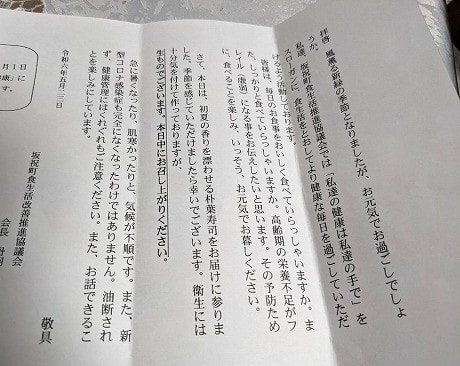 拝啓　風薫る新緑の季節となりましたが、お元気でお過ごしでしょ
うか。
私達、坂祝町食生活推進協議会では「私達の健康は私達の手で」を
スローガンに、食生活をとおしてより健康な毎日を過ごしていただ
けるよう活動しております。
皆様は、毎日のお食事をおいしく食べていらっしゃいますか。ま
た、しっかりと食べていらっしゃいますか。高齢期の栄養不足がフ
レイル（虚弱）になる事をお伝えしたいと思います。その予防ため
に、食べることを楽しみ、いっそう、お元気でお暮しください。
さて、本日は、初夏の香りを漂わせる朴葉寿司をお届けに参りま
した。季節を感じていただけましたら幸いでございます。衛生には
十分気を付けて作っておりますが、
生ものでございます。本日中にお召し上がりください。
急に暑くなったり、肌寒かったりと、気候が不順です。また、新
型コロナ感染症も完全になくなったわけではありません。油断され
ず、健康管理にはくれぐれもご注意ください。また、お話できるこ
とを楽しみにしています。
敬具
令和六年五月二三日
坂祝町食生活改善推進協議会
会長
月1日
健康」
す。